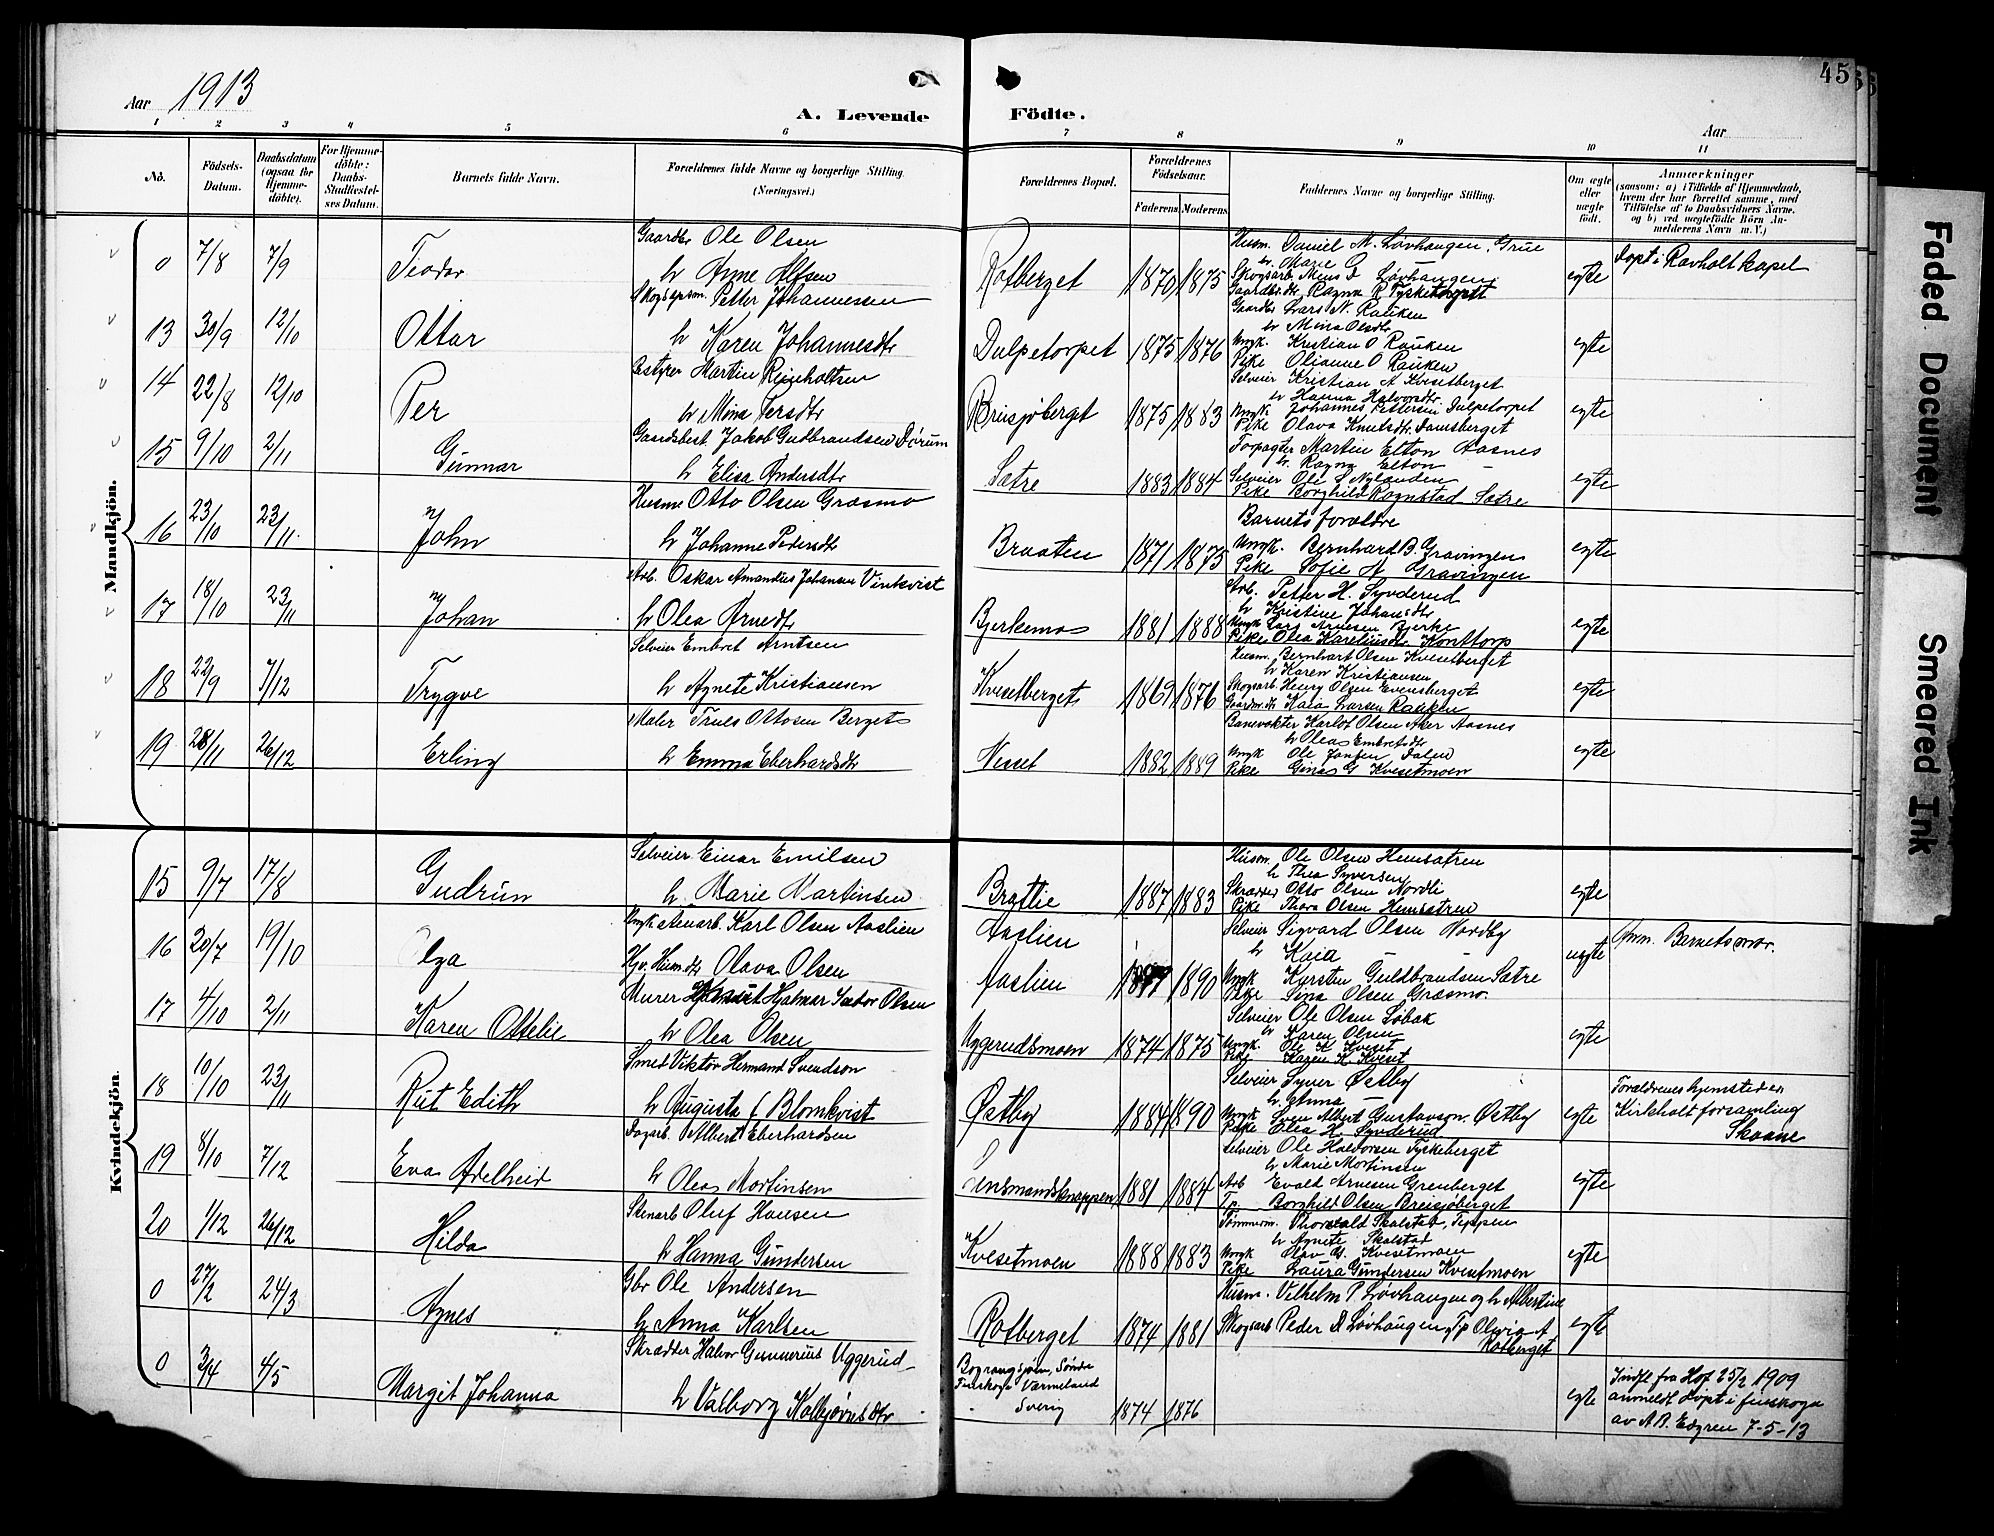 45
Aar 1913
A. Levende Födte.
Aar
1 2 3 4 5 6 7 8 9 10 11
No.
Födsels-Datum.
Daabsdatum (ogsaa for Hjemme-döbte).
For Hjemme-döbte: Daabs-Stadfæstelses Datum.
Barnets fulde Navn.
Forældrenes fulde Navne og borgerlige Stilling. (Næringsvei.)
Forældrenes Bopæl.
Forældrenes Födselsaar.
Faderens Moderens
Faddernes Navne og borgerlige Stilling.
Om ægte eller uægte födt.
Anmærkninger
(saasom: a) i Tilfælde af Hjemmedaab, hvem der har forrettet samme, med Tilföielse af to Daabsvidners Navne, og b) ved uægtefödte Börn Anmelderens Navn m. V.)
Mandkjön.
0 7/8 7/9 Teodor
Gaardbr Ole Olsen
h Anne Olsen
Rotberget 1870 1875
Husm. Daniel M. Løvhaugen, Grue
h. Marie O
Skogsarb. Mens D Løvhaugen
Gaardbr.dtr Ragna R Tyskeberget
egte
Døpt i Ravholt kapel
13 30/9 12/10 Ottar
Skogsopsm. Petter Johannessen
h Karen Johannesdtr
Dulpetorpet 1875 1876
Gaardbr Lars N. Rauken
h Mina Olsdtr
Ungk. Kristian O Rauken
Pike Olianne O Rauken
egte
14 22/8 12/10 Per
Bestyrer Martin Reinholtsen
h Mina Persdtr
Breisjøberget 1875 1883
Selveier Kristian A Kvesetberget
h Hanna Halvorsdtr
Ungk. Johannes Pettersen Dulpetorpet
Pike Olava Knutsdtr. Damsberget
egte
15 9/10 2/11 Gunnar
Gaardsbest. Jakob Gudbrandsen Dørum
h Elisa Andersdtr
Sætre 1883 1884
Forpagter Martin Elton Aasnes
h. Ragna Elton
Selveier Ole S Nylanden
Pike Borghild Rognstad Sætre
egte
16 23/10 23/11. John
Husm Otto Olsen Græsmo
h Johanne Pedersdtr
Braaten 1871 1875
Barnets forældre
Ungk. Bernhard B. Gravingen
Pike Sofie A Gravingen
egte
17 18/10 23/11 Johan
Arb. Oskar Amandus Johansen Vinkvist
h Olea Arnedtr
Bjerkemo 1881 1888
Arb. Petter H. Synderud
h Kristine Johansdtr
Ungk Lars Arnesen Bjerke
Pike Olea Kareliusdtr Konttorp
egte
18 22/9 7/12 Trygve
Selveier Embret Arntsen
h Agnete Kristiansen
Kvesetberget 1869 1876
Husm. Bernhart Olsen Kvesetberget
h Karen Kristiansen
Skogsarb. Henry Olsen Evensberget
Gaardm.dtr Kaia Larsen Rauken
egte
19 28/11 26/12 Erling
Maler Truls Ottosen Berget
h Emma Eberhardsdtr
Nesset 1882 1889
Banevokter Karlot Olsen Aker Aasnes
h Olea Embretsdtr
Ungk Ole Jansen Dalen
Pike Gina G Kvesetmoen
egte
Kvindekjön.
15 9/7 17/8 Gudrun
Selveier Einar Emilsen
h. Marie Martinsen
Bratlie 1887 1883
Husm. Ole Olsen Hemsætren
h Thea Syversen
Skrædder Otto Olsen Nordli
Pike Thora Olsen Hemsætren
egte
16 20/7 19/10 Olga
Ungk stenarb. Karl Olsen Aaslien
Gjv. Husm.dtr Olava Olsen
Aaslien
Aaslien 1890
Selveier Sigvard Olsen Nordby
h Kaia
Ungk Kyrsten Guldbrandsen Sætre
Pike Sina Olsen Græsmo.
uegte
Anm. Barnets mor.
17 4/10 2/11 Karen Ottelie
Murer Hjalmar Sætor Olsen
h Olea Olsen
Uggerudsmoen 1874 1875
Selveier Ole Olsen Løbak
h Karen Olsen
Ungk. Ole K Kveset
Pike Karen K. Kveset
egte
18 10/10 23/11 Rut Edith
Smed Viktor Hermand Svendson
h Augusta C Blomkvist
Østby 1884 1890
Selveier Syver Østby
h. Anna —
Ungk Sven Albert Gustavson. Østby
Pike Olea H. Synderud
egte
Forældrenes hjemsted er
Kirkholt forsamling
Skaane
19 8/10 7/12 Eva Adelheid
Dagarb. Albert Eberhardsen
h Olea Mortinsen
Lensmandsknappen 1881 1884
Selveier Ole Haldorsen Tyskeberget
h Marie Mortinsen
Arb Evald Arnesen Grenberget
Tp Borghild Olsen Breisjøberget
egte
20 1/12 26/12 Hilda
Stenarb Oluf Hansen
h Hanna Gundersen
Kvesetmoen 1888 1883
Tømmerm. Thorvald Skalstad, Teppen
h Agnete Skalstad
Ungk Olav G. Kvesetmoen
Pike Laura Gundersen Kvesetmoen
egte
0 27/2 24/3 Agnes
Gbr Ole Andersen
h Anna Karlsen
Rotberget 1874 1881
Husm. Vilhelm P. Løvhaugen og h Albertine
Skogsarb Peder D Løvhaugen, Tp Olivia A
Rotberget
egte
0 3/4 4/5 Margit Johanna
Skrædder Halvor Gunnerius Uggerud
h Valborg Kolbjørnsdtr
Bograngsjøen, Søndre
Finskoga Värmeland
Sverig 1874 1876
egte
Indfl. fra Hof 25/2 1909
anmeldt døpt i finskoga
av A.B. Edgren 7-5-13
Faded Document
Smeared Ink